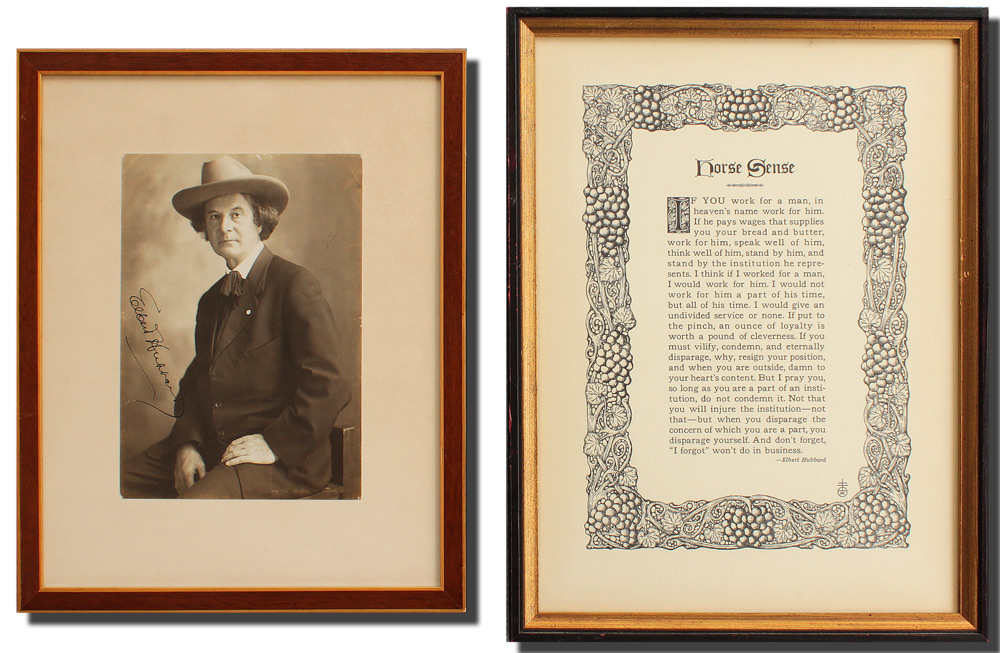 Elbert Hubbard
Horse Sense
IF YOU work for a man, in
heaven's name work for him.
If he pays wages that supplies
you your bread and butter,
work for him, speak well of him,
think well of him, stand by him, and
stand by the institution he repre-
sents. I think if I worked for a man,
I would work for him. I would not
work for him a part of his time,
but all of his time. I would give an
undivided service or none. If put to
the pinch, an ounce of loyalty is
worth a pound of cleverness. If you
must vilify, condemn, and eternally
disparage, why, resign your position,
and when you are outside, damn to
your heart's content. But I pray you,
so long as you are a part of an insti-
tution, do not condemn it. Not that
you will injure the institution—not
that—but when you disparage the
concern of which you are a part, you
disparage yourself. And don't forget,
"I forgot" won't do in business.
—Elbert Hubbard